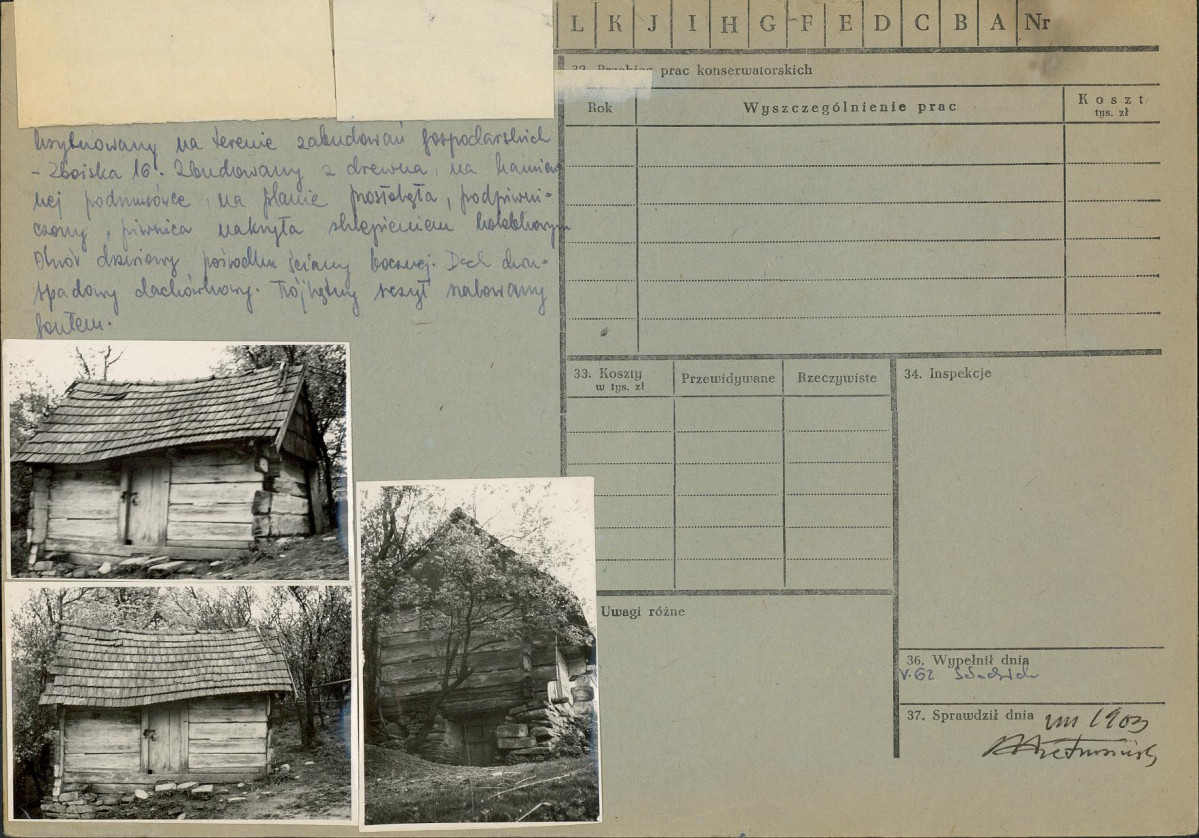 L K J I H G F E D C B A Nr
usytuowany na terenie zabudowań gospodarskich
- Zboiska 16. Zbudowany z drewna, na kamien-
nej podmurówce, na planie prostokąta, podpiwni-
czony, piwnica nakryta sklepieniem kolebkowym
Otwór drzwiowy pośrodku ściany bocznej. Dach dwu-
spadowy dachówkowy. Trójkątny szczyt szalowany
gontem.
32. Przebieg prac konserwatorskich
Rok
Wyszczególnienie prac
Koszt
tys. zł
33. Koszty
w tys. zł
Przewidywane
Rzeczywiste
34. Inspekcje
Uwagi różne
36. Wypełnił dnia
V.62
37. Sprawdził dnia